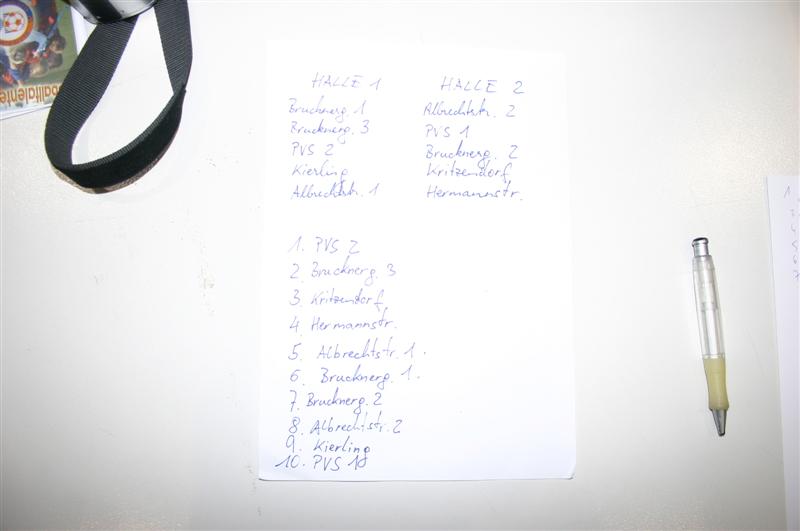 balltalente
HALLE 1
Brucknerg. 1
Brucknerg. 3
PVS 2
Kierling
Albrechtstr. 1
HALLE 2
Albrechtstr. 2
PVS 1
Brucknerg. 2
Kritzendorf
Hermannstr.
1. PVS 2
2. Brucknerg. 3
3. Kritzendorf
4. Hermannstr.
5. Albrechtstr. 1.
6. Brucknerg. 1.
7. Brucknerg. 2
8. Albrechtstr. 2
9. Kierling
10. PVS 1